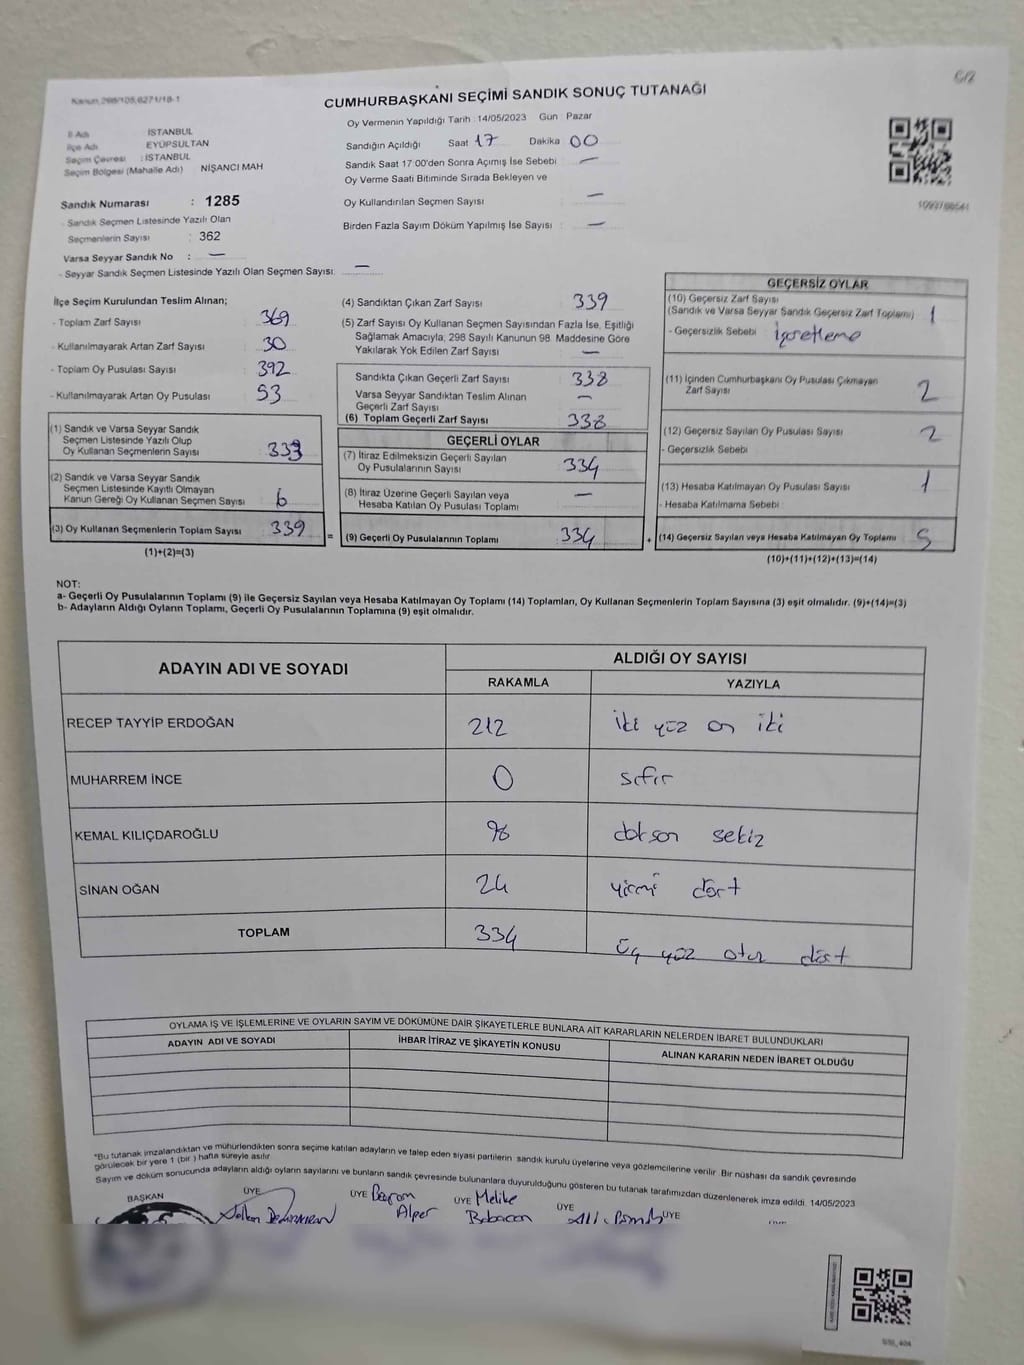 6/2
Kanun 298/105,6271/18-1
CUMHURBAŞKANI SEÇİMİ SANDIK SONUÇ TUTANAĞI
İl Adı : İSTANBUL
İlçe Adı : EYÜPSULTAN
Seçim Çevresi : İSTANBUL
Seçim Bölgesi (Mahalle Adı) NİŞANCI MAH
Sandık Numarası : 1285
- Sandık Seçmen Listesinde Yazılı Olan
Seçmenlerin Sayısı : 362
Varsa Seyyar Sandık No : —
- Seyyar Sandık Seçmen Listesinde Yazılı Olan Seçmen Sayısı : —
Oy Vermenin Yapıldığı Tarih : 14/05/2023 Gün Pazar
Sandığın Açıldığı Saat 17 Dakika 00
Sandık Saat 17:00'den Sonra Açımış İse Sebebi : —
Oy Verme Saati Bitiminde Sırada Bekleyen ve
Oy Kullandırılan Seçmen Sayısı : —
Birden Fazla Sayım Döküm Yapılmış İse Sayısı : —
İlçe Seçim Kurulundan Teslim Alınan;
- Toplam Zarf Sayısı : 369
- Kullanılmayarak Artan Zarf Sayısı : 30
- Toplam Oy Pusulası Sayısı : 392
- Kullanılmayarak Artan Oy Pusulası : 53
(1) Sandık ve Varsa Seyyar Sandık
Seçmen Listesinde Yazılı Olup
Oy Kullanan Seçmenlerin Sayısı : 333
(2) Sandık ve Varsa Seyyar Sandık
Seçmen Listesinde Kayıtlı Olmayan
Kanun Gereği Oy Kullanan Seçmen Sayısı : 6
(3) Oy Kullanan Seçmenlerin Toplam Sayısı : 339
(1)+(2)=(3)
(4) Sandıktan Çıkan Zarf Sayısı : 339
(5) Zarf Sayısı Oy Kullanan Seçmen Sayısından Fazla İse, Eşitliği
Sağlamak Amacıyla; 298 Sayılı Kanunun 98. Maddesine Göre
Yakılarak Yok Edilen Zarf Sayısı : —
Sandıkta Çıkan Geçerli Zarf Sayısı : 338
Varsa Seyyar Sandıktan Teslim Alınan
Geçerli Zarf Sayısı : —
(6) Toplam Geçerli Zarf Sayısı : 338
GEÇERLİ OYLAR
(7) İtiraz Edilmeksizin Geçerli Sayılan
Oy Pusulalarının Sayısı : 334
(8) İtiraz Üzerine Geçerli Sayılan veya
Hesaba Katılan Oy Pusulası Toplamı : —
= (9) Geçerli Oy Pusulalarının Toplamı : 334
GEÇERSİZ OYLAR
(10) Geçersiz Zarf Sayısı
(Sandık ve Varsa Seyyar Sandık Geçersiz Zarf Toplamı) : 1
- Geçersizlik Sebebi : işaretleme
(11) İçinden Cumhurbaşkanı Oy Pusulası Çıkmayan
Zarf Sayısı : 2
(12) Geçersiz Sayılan Oy Pusulası Sayısı : 2
- Geçersizlik Sebebi
(13) Hesaba Katılmayan Oy Pusulası Sayısı : 1
- Hesaba Katılmama Sebebi
+ (14) Geçersiz Sayılan veya Hesaba Katılmayan Oy Toplamı : 5
(10)+(11)+(12)+(13)=(14)
NOT:
a- Geçerli Oy Pusulalarının Toplamı (9) ile Geçersiz Sayılan veya Hesaba Katılmayan Oy Toplamı (14) Toplamları, Oy Kullanan Seçmenlerin Toplam Sayısına (3) eşit olmalıdır. (9)+(14)=(3)
b- Adayların Aldığı Oyların Toplamı, Geçerli Oy Pusulalarının Toplamına (9) eşit olmalıdır.
ADAYIN ADI VE SOYADI ALDIĞI OY SAYISI
RAKAMLA YAZIYLA
RECEP TAYYİP ERDOĞAN 212 iki yüz on iki
MUHARREM İNCE 0 sıfır
KEMAL KILIÇDAROĞLU 98 doksan sekiz
SİNAN OĞAN 24 yirmi dört
TOPLAM 334 üç yüz otuz dört
OYLAMA İŞ VE İŞLEMLERİNE VE OYLARIN SAYIM VE DÖKÜMÜNE DAİR ŞİKAYETLERLE BUNLARA AİT KARARLARIN NELERDEN İBARET BULUNDUKLARI
ADAYIN ADI VE SOYADI İHBAR İTİRAZ VE ŞİKAYETİN KONUSU ALINAN KARARIN NEDEN İBARET OLDUĞU
*Bu tutanak imzalandıktan ve mühürlendikten sonra seçime katılan adayların ve talep eden siyasi partilerin sandık kurulu üyelerine veya gözlemcilerine verilir. Bir nüshası da sandık çevresinde
görülecek bir yere 1 (bir ) hafta süreyle asılır.
Sayım ve döküm sonucunda adayların aldığı oyların sayılarını ve bunların sandık çevresinde bulunanlara duyurulduğunu gösteren bu tutanak tarafımızdan düzenlenerek imza edildi. 14/05/2023
BAŞKAN ÜYE ÜYE Bayram ÜYE Melike ÜYE ÜYE
Alper Babacan